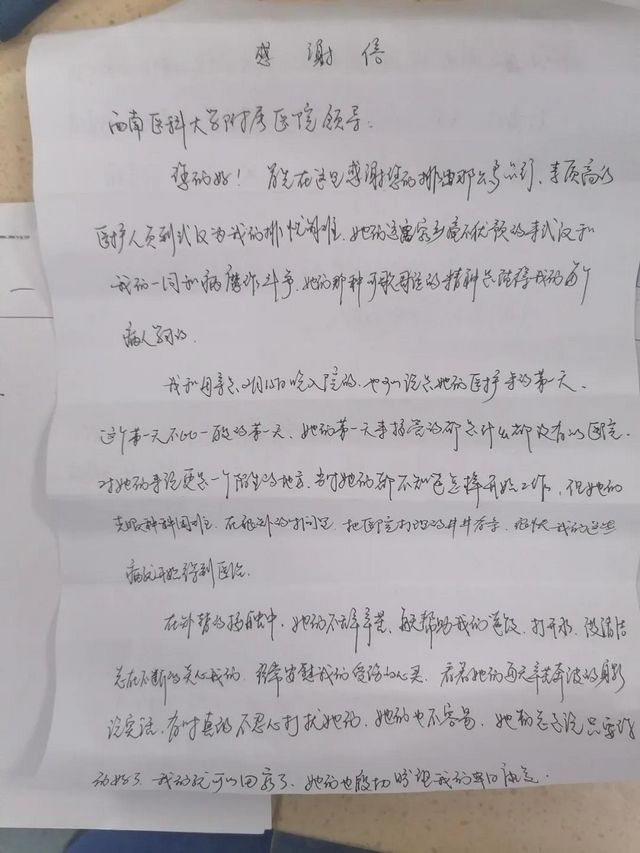 感谢信
西南医科大学附属医院领导：
您们好！首先在这里感谢您们排出那么专业的、素质高的
医护人员到武汉为我们排忧解难。她们远离家乡毫不犹预的来武汉和
我们一同和病魔作斗争，她们那种可歌可泣的精神总值得我们每个
病人学习的。
我和母亲是2月15日晚入院的，也可以说是她们医护来的第一天。
这个第一天不比一般的第一天，她们第一天来接管的都是什么都没有的医院。
对她们来说更是一个陌生的地方，当时她们都不知道怎样开始工作，但她们
克服种种困难，在很少的时间里，把医院打理的井井有条，很快我们这些
病友开始得到医治。
在外替的接触中，她们不辞辛苦，每天帮助我们送饭、打开水、做清洁
总在不断的关心我们，经常安慰我们受伤的心灵，看着她们每天辛苦奔波的身影
说实话，有时真的不忍心打扰她们，她们也不容易，她们总是说只要你
们好了，我们就可以回家了，她们也殷切盼望我们早日康复。